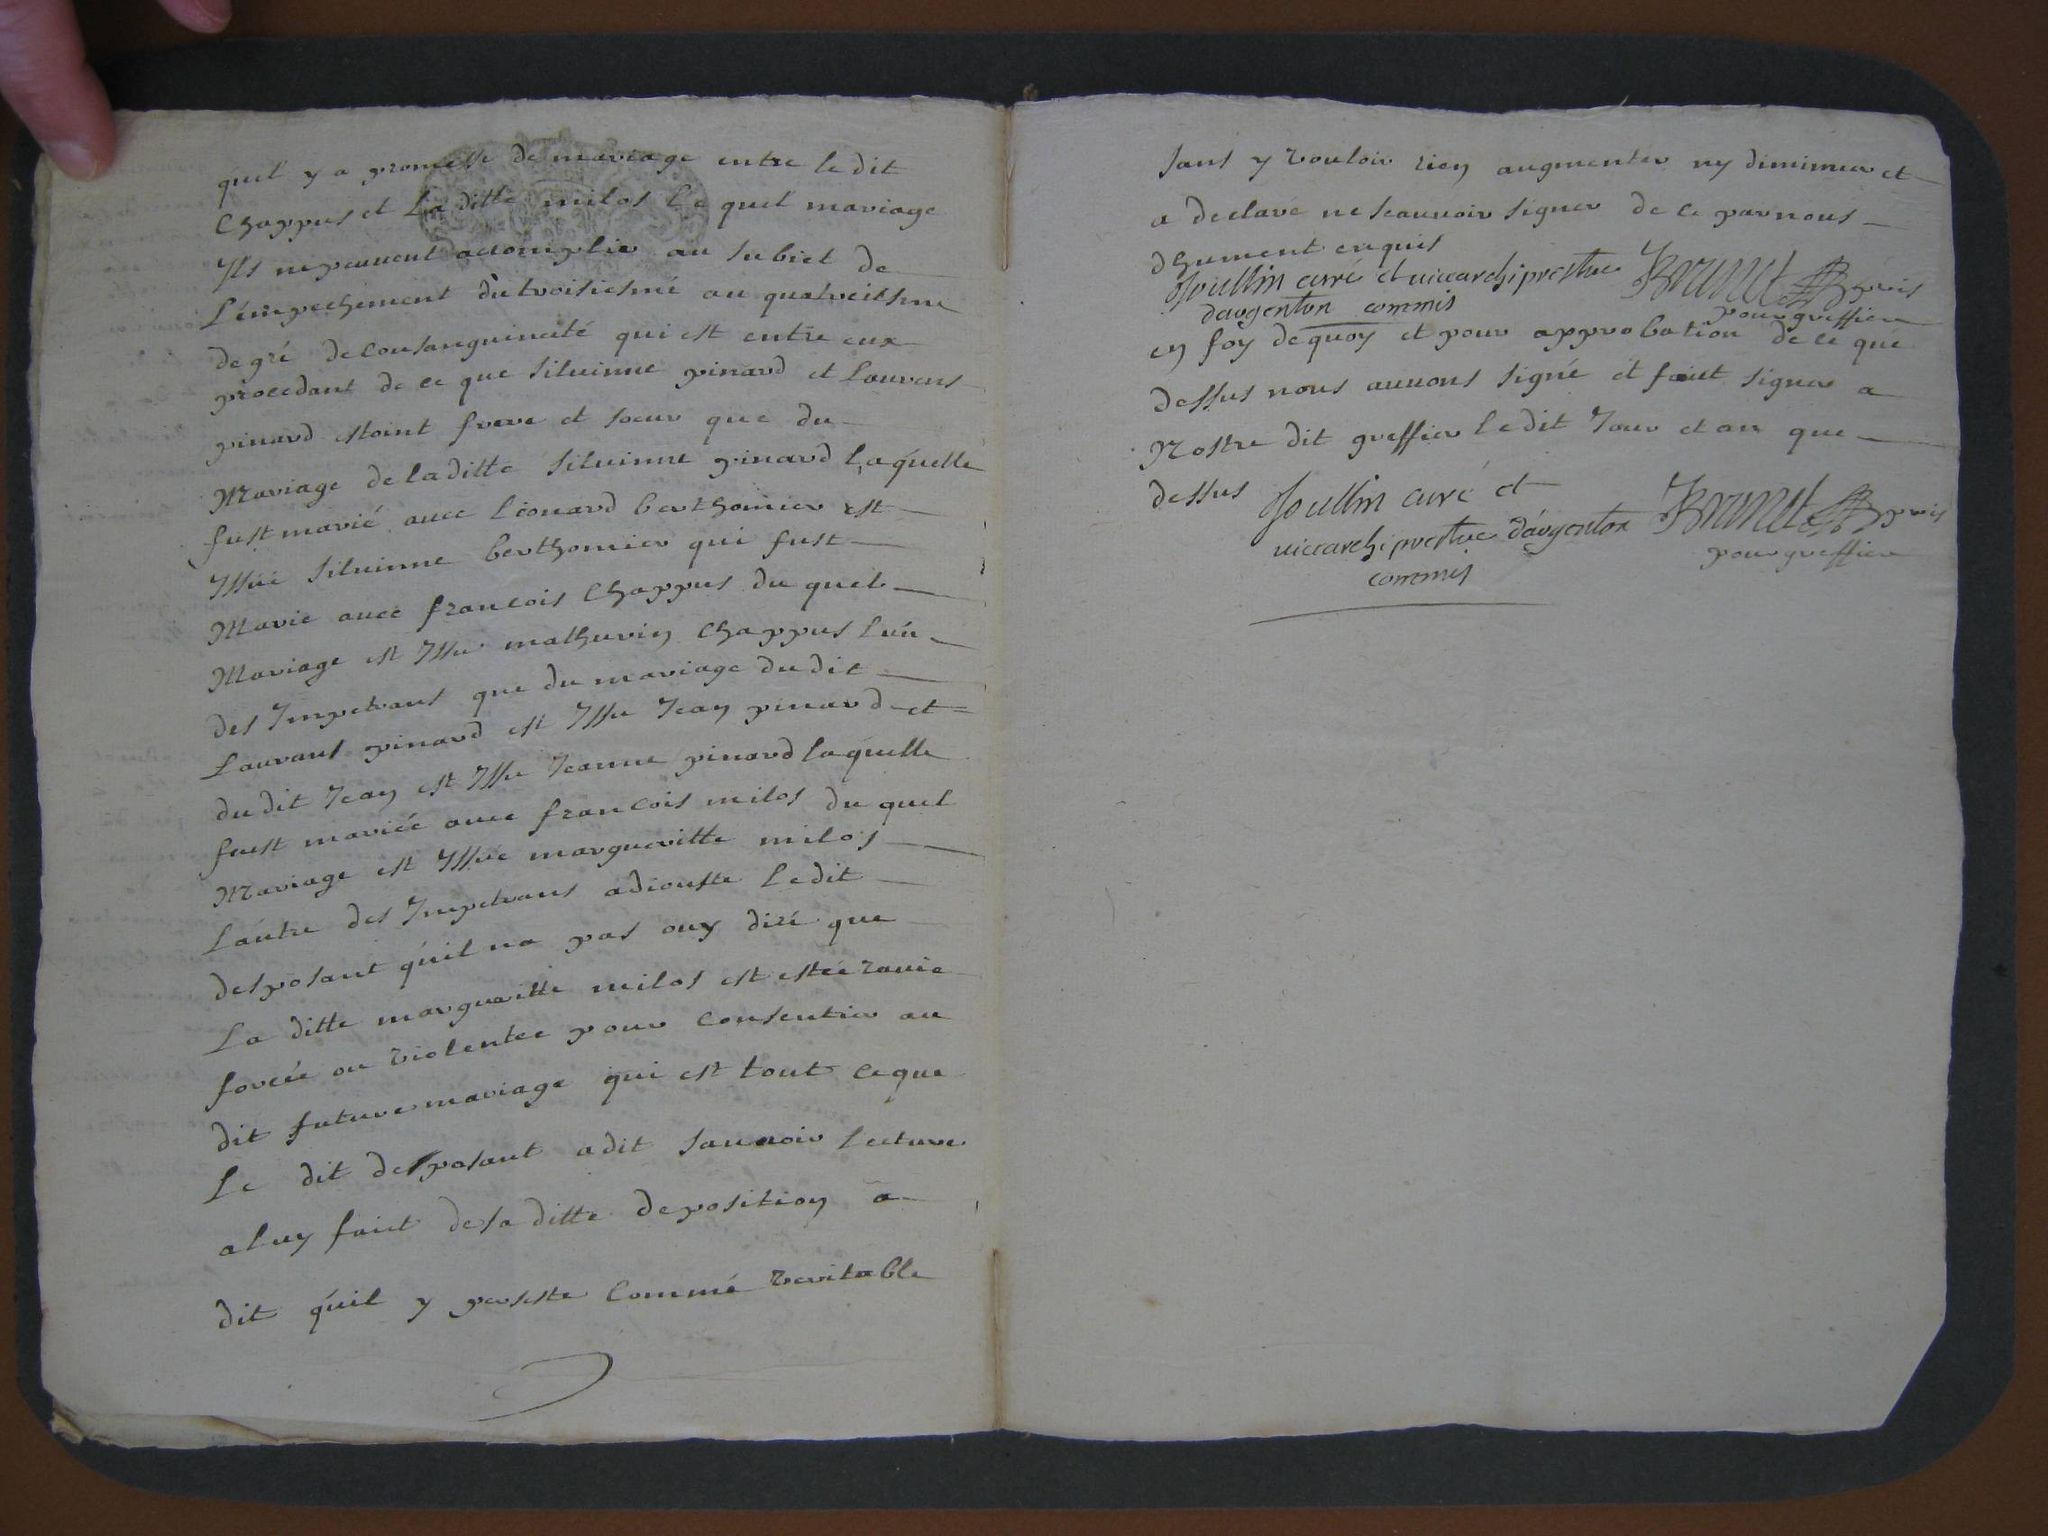 quil y a promesse de mariage entre le dit
Chappus et La ditte milos Le quel mariage
Ils ne peuuent accomplir au subiet de
L'émpechement du troisiesme au quatreiesme
degré de consanguinité qui est entre eux
procedant de ce que Siluinne pinard et Laurens
pinard estoint frere et soeur que du
Mariage de la ditte Siluinne pinard Laquelle
fust marié auec Léonard berthomier est
Issüe Siluinne berthomier qui fust
Marie auec francois Chappus du quel
Mariage est Issu mathurin Chappus Lún
des Impetrans que du mariage du dit
Laurans pinard est Issu Jean pinard et
du dit Jean est Issu Jeanne pinard laquelle
fust mariée auec francois milos du quel
Mariage est Issüe margueritte milos
Lautre des Impetrans adiouste Le dit
desposant quíl na pas ouy diré que
La ditte margueritte milos est estée rauie
forcée ou violentee pour consentir au
dit future mariage qui est tout ce que
Le dit desposant a dit sauuoir Lecture
a luy faict de sa ditte deposition a
dit quíl y persiste Commé veritable
sans y vouloir rien augmenter ny diminuer et
a declaré ne scauuoir signer de ce par nous
dhument enquis
Joullin curé et uicearchiprestre Brunet pris
dargenton commis pour greffier
en foy de quoy et pour approbation de ce que
dessus nous auuons signé et faict signer a
Nostre dit greffier Le dit Jour et an que
dessus Joullin curé et Brunet pris
uicearchiprestre d'argenton pour greffier
commis